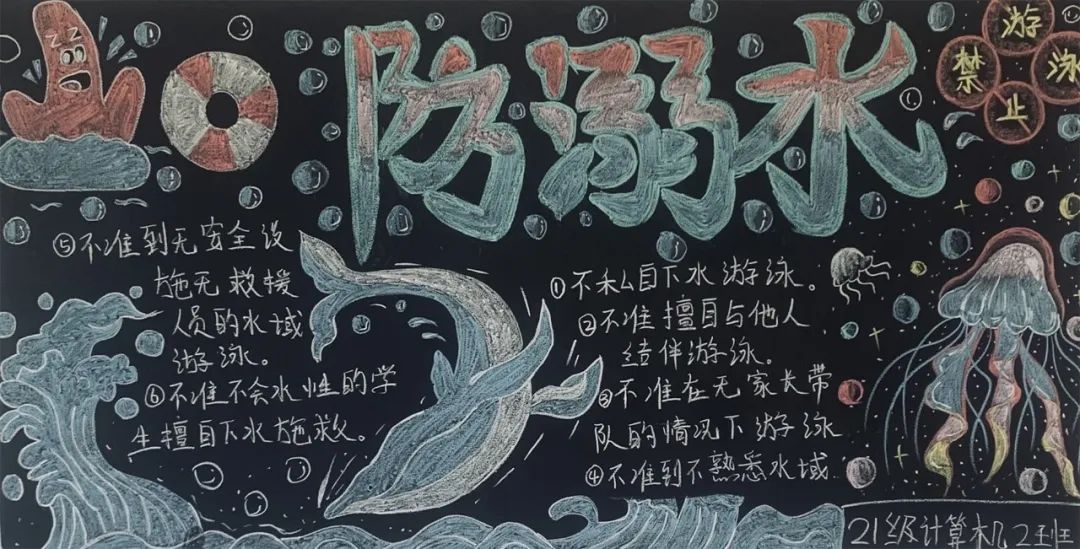 防溺水
禁
游
泳
止
①不私自下水游泳。
②不准擅自与他人
结伴游泳。
③不准在无家长带
队的情况下游泳
④不准到不熟悉水域
⑤不准到无安全设
施无救援
人员的水域
游泳。
⑥不准不会水性的学
生擅自下水施救。
21级计算机2班